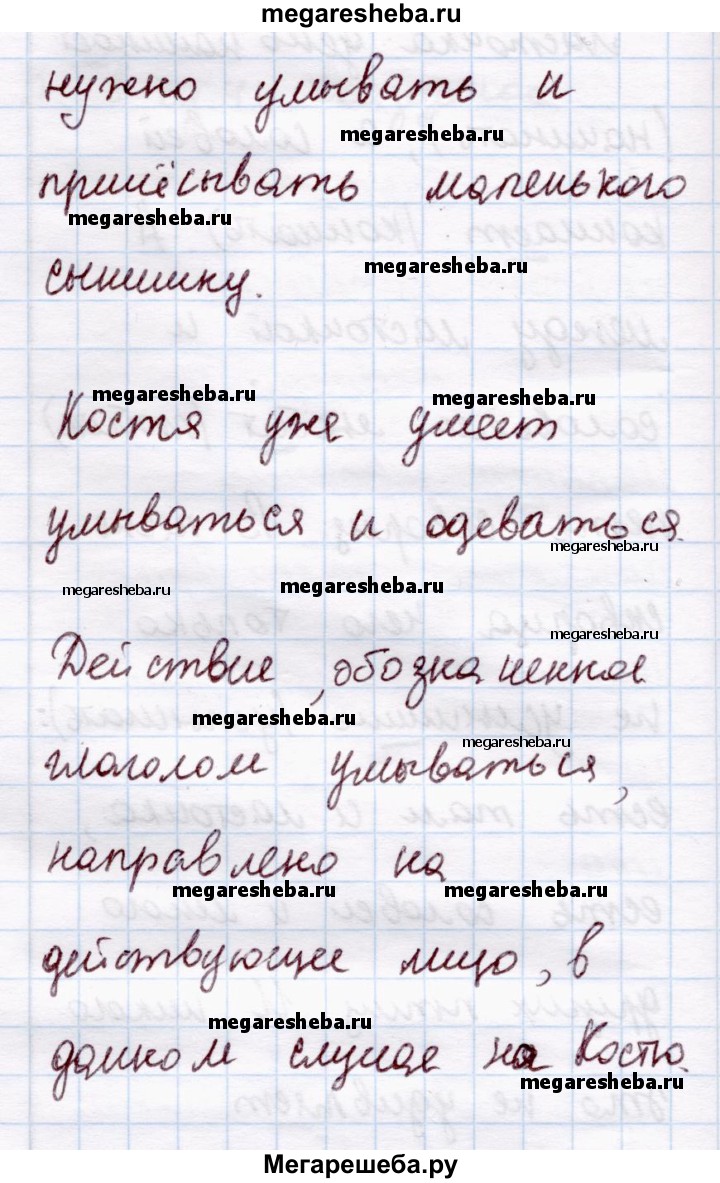 megaresheba.ru
нужно умывать и
megaresheba.ru
причёсывать маленького
megaresheba.ru
сынишку.
megaresheba.ru
megaresheba.ru
megaresheba.ru
Костя уже умеет
умываться и одеваться.
megaresheba.ru
megaresheba.ru
megaresheba.ru
megaresheba.ru
Действие, обозначенное
megaresheba.ru
megaresheba.ru
глаголом умываться,
направлено на
megaresheba.ru
megaresheba.ru
действующее лицо, в
megaresheba.ru
данном случае на Костю.
megaresheba.ru
Мегарешеба.ру